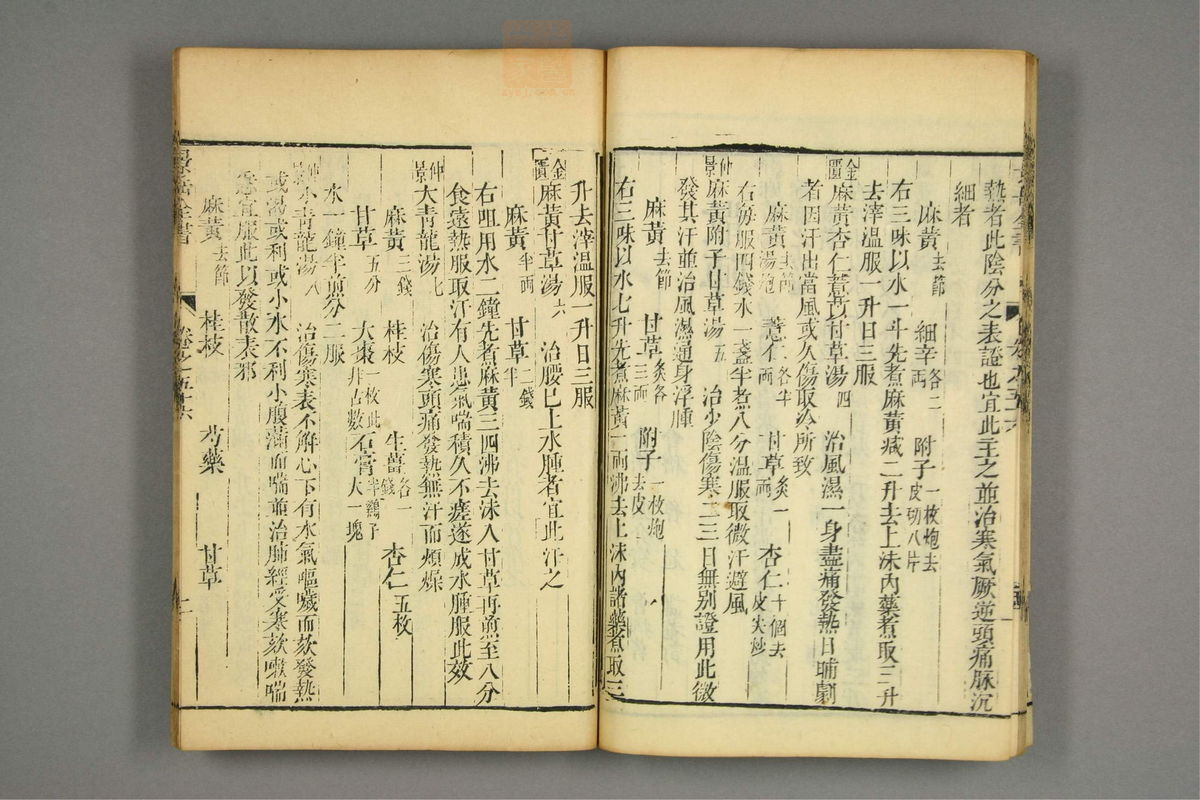 熱者此陰分之表證也宜此主之並治寒氣厥逆頭痛脉沉
細者
麻黃去節 細辛各二兩 附子一枚炮去皮切八片
右三味以水一斗先煮麻黃减二升去上沫內藥煮取三升
去滓溫服一升日三服
金匱麻黃杏仁薏苡甘草湯四 治風濕一身盡痛發熱日晡劇
者因汗出當風或久傷取冷所致
麻黃去節湯泡 薏仁各半兩 甘草炙一兩 杏仁十個去皮尖炒
右每服四錢水一盞半煮八分溫服取微汗避風
仲景麻黃附子甘草湯五 治少陰傷寒二三日無别證用此微
發其汗並治風濕通身浮腫
麻黃去節 甘草炙各三兩 附子一枚炮去皮
右三味以水七升先煮麻黃一兩沸去上沫內諸藥煮取三
升去滓溫服一升日三服
金匱麻黃甘草湯六 治腰已上水腫者宜此汗之
麻黃半兩 甘草二錢半
右咀用水二鐘先煮麻黃三四沸去沫入甘草再煎至八分
食遠熱服取汗有人患氣喘積久不瘥遂成水腫服此效
仲景大青龍湯七 治傷寒頭痛發熱無汗而煩燥
麻黃三錢 桂枝 生薑各一錢 杏仁五枚
甘草五分 大棗一枚此非古數 石膏半鷄子大一塊
水一鐘半煎分二服
仲景小青龍湯八 治傷寒表不解心下有水氣嘔噦而欬發熱
或渴或利或小水不利小腹滿而喘並治肺經受寒欬嗽喘
急宜服此以發散表邪
麻黃去節 桂枝 芍藥 甘草
景岳全書 卷之五十六 二